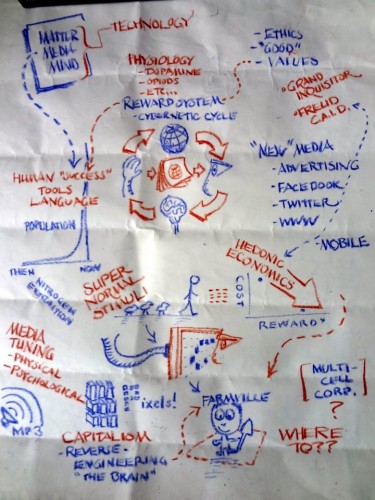 MATTER
MEDIA
MIND
TECHNOLOGY
- ETHICS
- "GOOD"
- VALUES
PHYSIOLOGY
- DOPAMINE
- OPIODS
- ETC...
REWARD SYSTEM
- CYBERNETIC CYCLE
"GRAND
INQUISITOR
FREUD
"NEW" MEDIA
- ADVERTISING
- FACEBOOK
- TWITTER
- WWW
- MOBILE
HUMAN "SUCCESS"
TOOLS
LANGUAGE
POPULATION
THEN
NOW
NITROGEN
SUPER
NORMAL
STIMULI
HEDONIC
ECONOMICS
COST
REWARD
MEDIA
TUNING
- PHYSICAL
- PSYCHOLOGICAL
MP3
ixels!
FARMVILLE
[MULTI-
CELL
CORP.]
?
CAPITALISM
- REVERSE-
ENGINEERING
"THE BRAIN"
WHERE
TO??